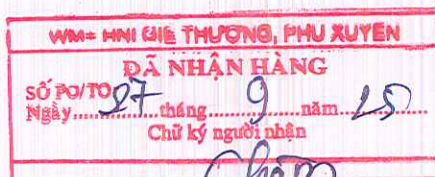 WM+ HNI GIẼ THƯỢNG, PHU XUYÊN
ĐÃ NHẬN HÀNG
SỐ PO/TO
Ngày 27 tháng 9 năm 25
Chữ ký người nhận